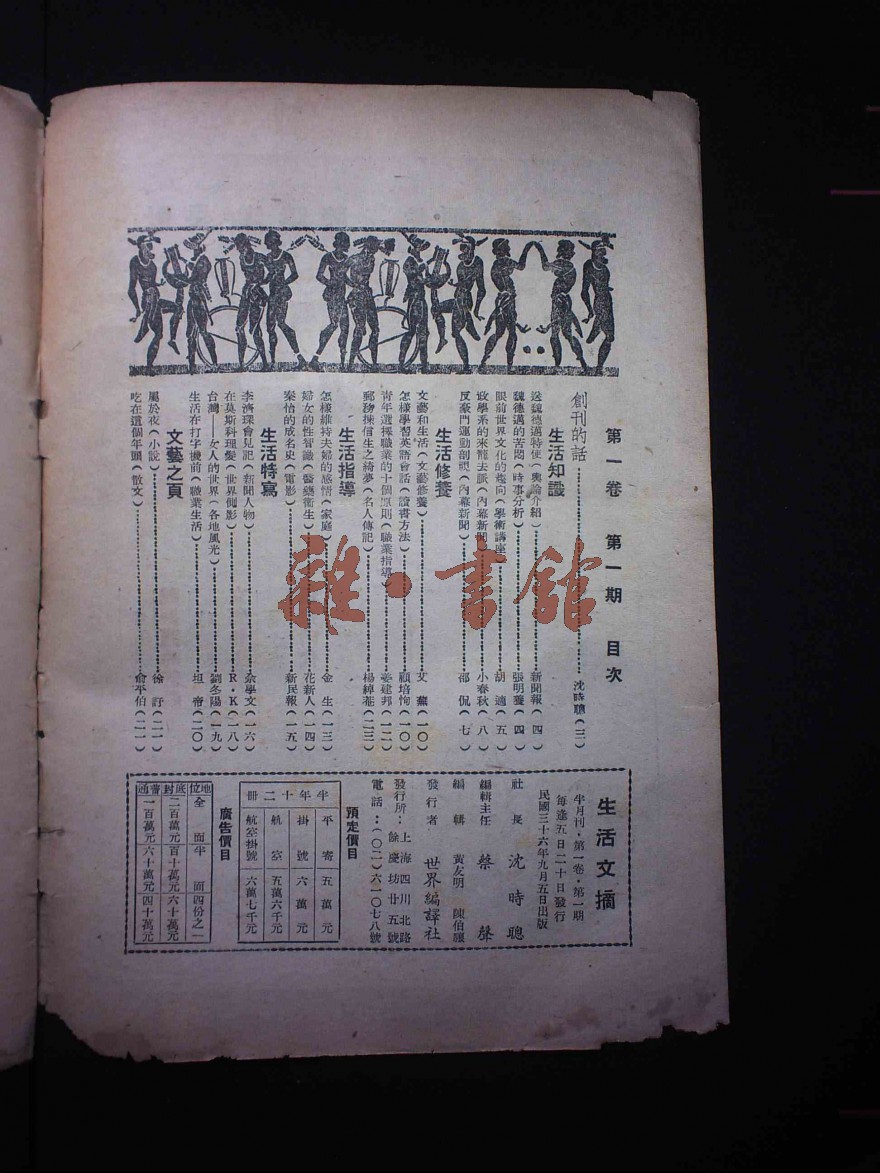 第一卷 第一期 目次
創刊的話 沈時聰(三)
生活知識
送魏德邁特使(輿論介紹) 新聞報(四)
魏德邁的苦悶(時事分析) 張明養(四)
眼前世界文化的趨向(學術講座) 胡適(五)
政學系的來龍去脈(內幕新聞) 小春秋(八)
反豪門運動剖視(內幕新聞) 邵侃(七)
生活修養
文藝和生活(文藝修養) 艾蕪(一〇)
怎樣學習英語會話(讀書方法) 顧培恂(一〇)
青年選擇職業的十個原則(職業指導) 姜建邦(一二)
郵務揀信生之綺夢(名人傳記) 楊綽菴(二三)
生活指導
怎樣維持夫婦的感情(家庭) 金生(一三)
婦女的性智識(醫藥衞生) 花新人(一四)
秦怡的成名史(電影) 新民報(一五)
生活特寫
李濟琛會見記(新聞人物) 余學文(一六)
在莫斯科理髮(世界側影) R·K(一八)
台灣——女人的世界(各地風光) 劉冬陽(一九)
生活在打字機前(職業生活) 坦帝(二〇)
文藝之頁
屬於夜(小說) 徐訏(二一)
吃在這個年頭(散文) 俞平伯(二一)
生活文摘
半月刊·第一卷·第一期
每逢五日二十日發行
民國三十六年九月五日出版
社長 沈時聰
編輯主任 蔡聲
編輯 黃友明 陳伯
發行者 世界編譯社
發行所:上海四川北路
餘慶坊廿五號
電話:(〇二)六一〇七八號
預定價目
半年十二冊
平寄 五萬元
掛號 六萬元
航空 五萬六千元
航空掛號 六萬七千元
廣告價目
地位 底封 普通
全面 二百萬元 一百萬元
半面 百十萬元 六十萬元
四份之一 六十萬元 四十萬元
雜·書館